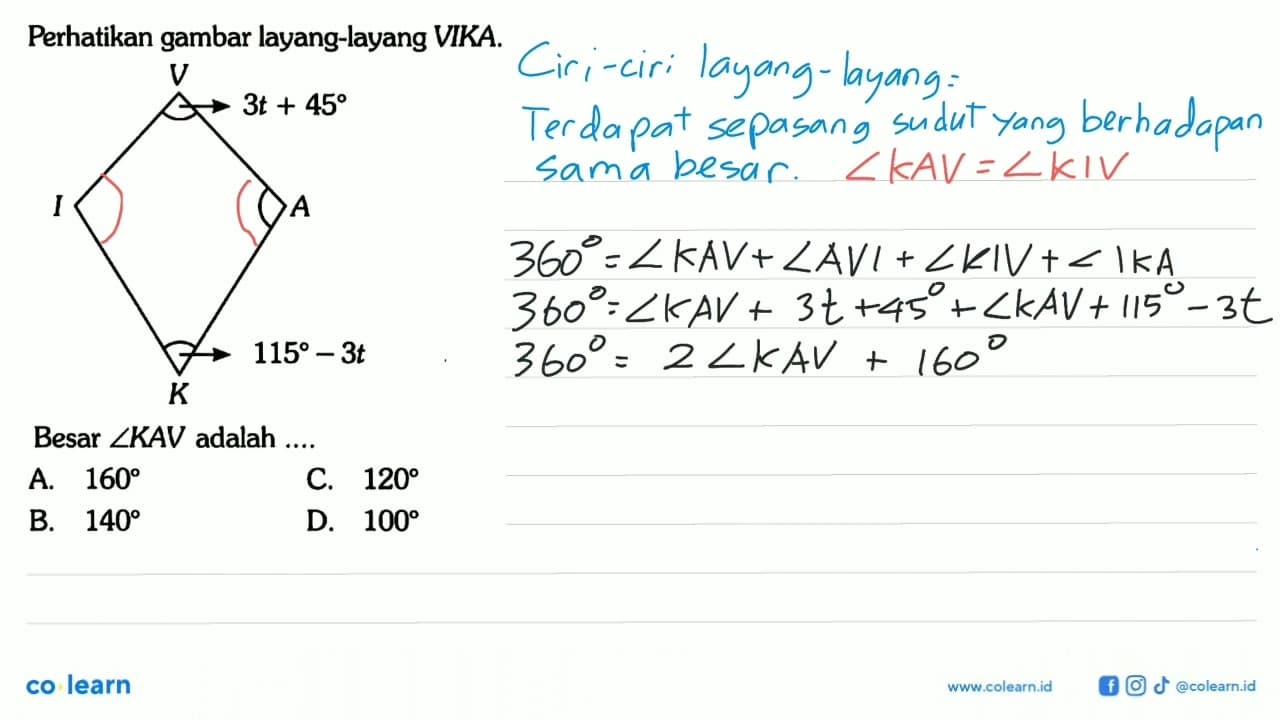 Perhatikan gambar layang-layang VIKA.
V
3t + 45°
I
A
115° – 3t
K
Besar ∠KAV adalah ....
A. 160°
C. 120°
B. 140°
D. 100°
Ciri-ciri layang-layang:
Terdapat sepasang sudut yang berhadapan
sama besar. ∠KAV = ∠KIV
360° = ∠KAV + ∠AVI + ∠KIV + ∠IKA
360° = ∠KAV + 3t + 45° + ∠KAV + 115° – 3t
360° = 2∠KAV + 160°
co learn
www.colearn.id
@colearn.id